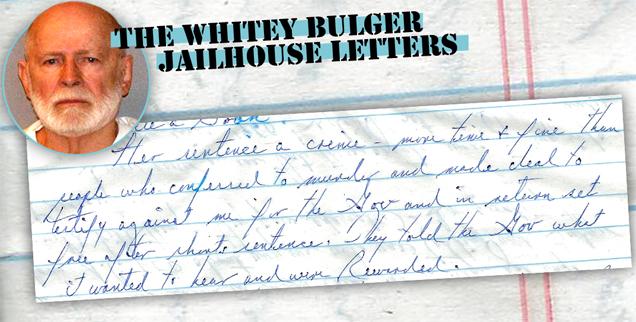 THE WHITEY BULGER
JAILHOUSE LETTERS
a Goon.
Her sentence a crime – more time & fine than
people who confessed to murder and made deal to
testify against me for the Gov and in return set
free after short sentence. They told the Gov what
it wanted to hear and were Rewarded.